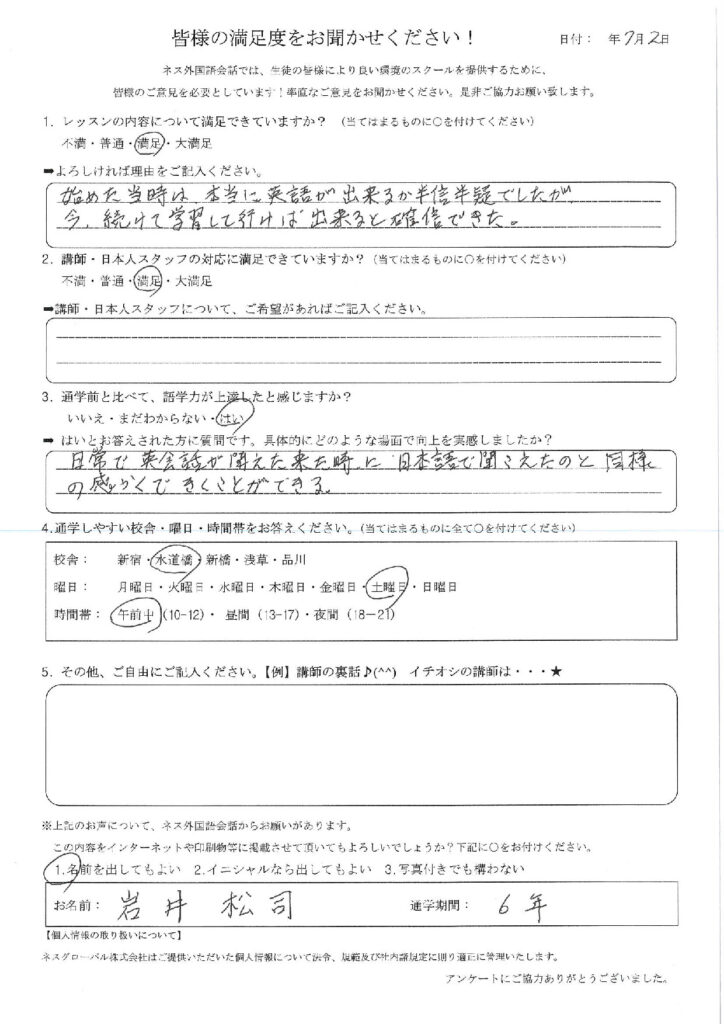 皆様の満足度をお聞かせください！
日付： 年7月2日
ネス外国語会話では、生徒の皆様により良い環境のスクールを提供するために、
皆様のご意見を必要としています！率直なご意見をお聞かせください。是非ご協力お願い致します。
1．レッスンの内容について満足できていますか？ （当てはまるものに○を付けてください）
不満・普通・満足・大満足
➡よろしければ理由をご記入ください。
始めた当時は、本当に英語が出来るか半信半疑でしたが
今、続けて学習して行けば出来ると確信できた。
2．講師・日本人スタッフの対応に満足できていますか？（当てはまるものに○を付けてください）
不満・普通・満足・大満足
➡講師・日本人スタッフについて、ご希望があればご記入ください。
3．通学前と比べて、語学力が上達したと感じますか？
いいえ・まだわからない・はい
➡ はいとお答えされた方に質問です。具体的にどのような場面で向上を実感しましたか？
日常で英会話が聞えた来た時に日本語で聞こえたのと同様
の感かくできくことができる。
4.通学しやすい校舎・曜日・時間帯をお答えください。（当てはまるものに全て○を付けてください）
校舎： 新宿・水道橋・新橋・浅草・品川
曜日： 月曜日・火曜日・水曜日・木曜日・金曜日・土曜日・日曜日
時間帯： 午前中（10-12）・ 昼間（13-17）・夜間（18－21）
5．その他、ご自由にご記入ください。【例】講師の裏話♪(^^)　イチオシの講師は・・・★
※上記のお声について、ネス外国語会話からお願いがあります。
この内容をインターネットや印刷物等に掲載させて頂いてもよろしいでしょうか？下記に○をお付けください。
1.名前を出してもよい　2.イニシャルなら出してもよい　3.写真付きでも構わない
お名前： 岩井 松司 通学期間： 6年
【個人情報の取り扱いについて】
ネスグローバル株式会社はご提供いただいた個人情報について法令、規範及び社内諸規定に則り適正に管理いたします。
アンケートにご協力ありがとうございました。